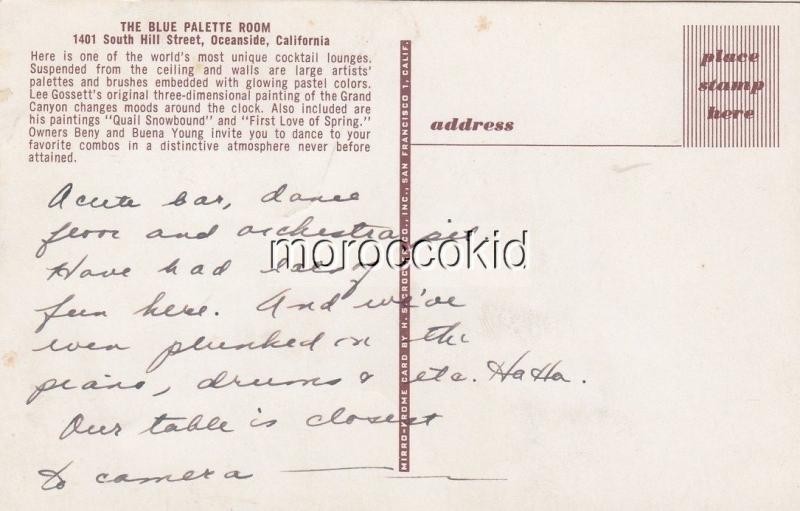 THE BLUE PALETTE ROOM
1401 South Hill Street, Oceanside, California
Here is one of the world's most unique cocktail lounges.
Suspended from the ceiling and walls are large artists'
palettes and brushes embedded with glowing pastel colors.
Lee Gossett's original three-dimensional painting of the Grand
Canyon changes moods around the clock. Also included are
his paintings "Quail Snowbound" and "First Love of Spring."
Owners Beny and Buena Young invite you to dance to your
favorite combos in a distinctive atmosphere never before
attained.
Acute bar, dance
floor and orchestra pit.
Have had lots of
fun here. And we've
even plunked on the
piano, drums & etc. HaHa.
Our table is closest
to camera
MIRRO-KROME CARD BY H. S. CROCKER CO., INC., SAN FRANCISCO 1, CALIF.
address
place
stamp
here
moroccokid